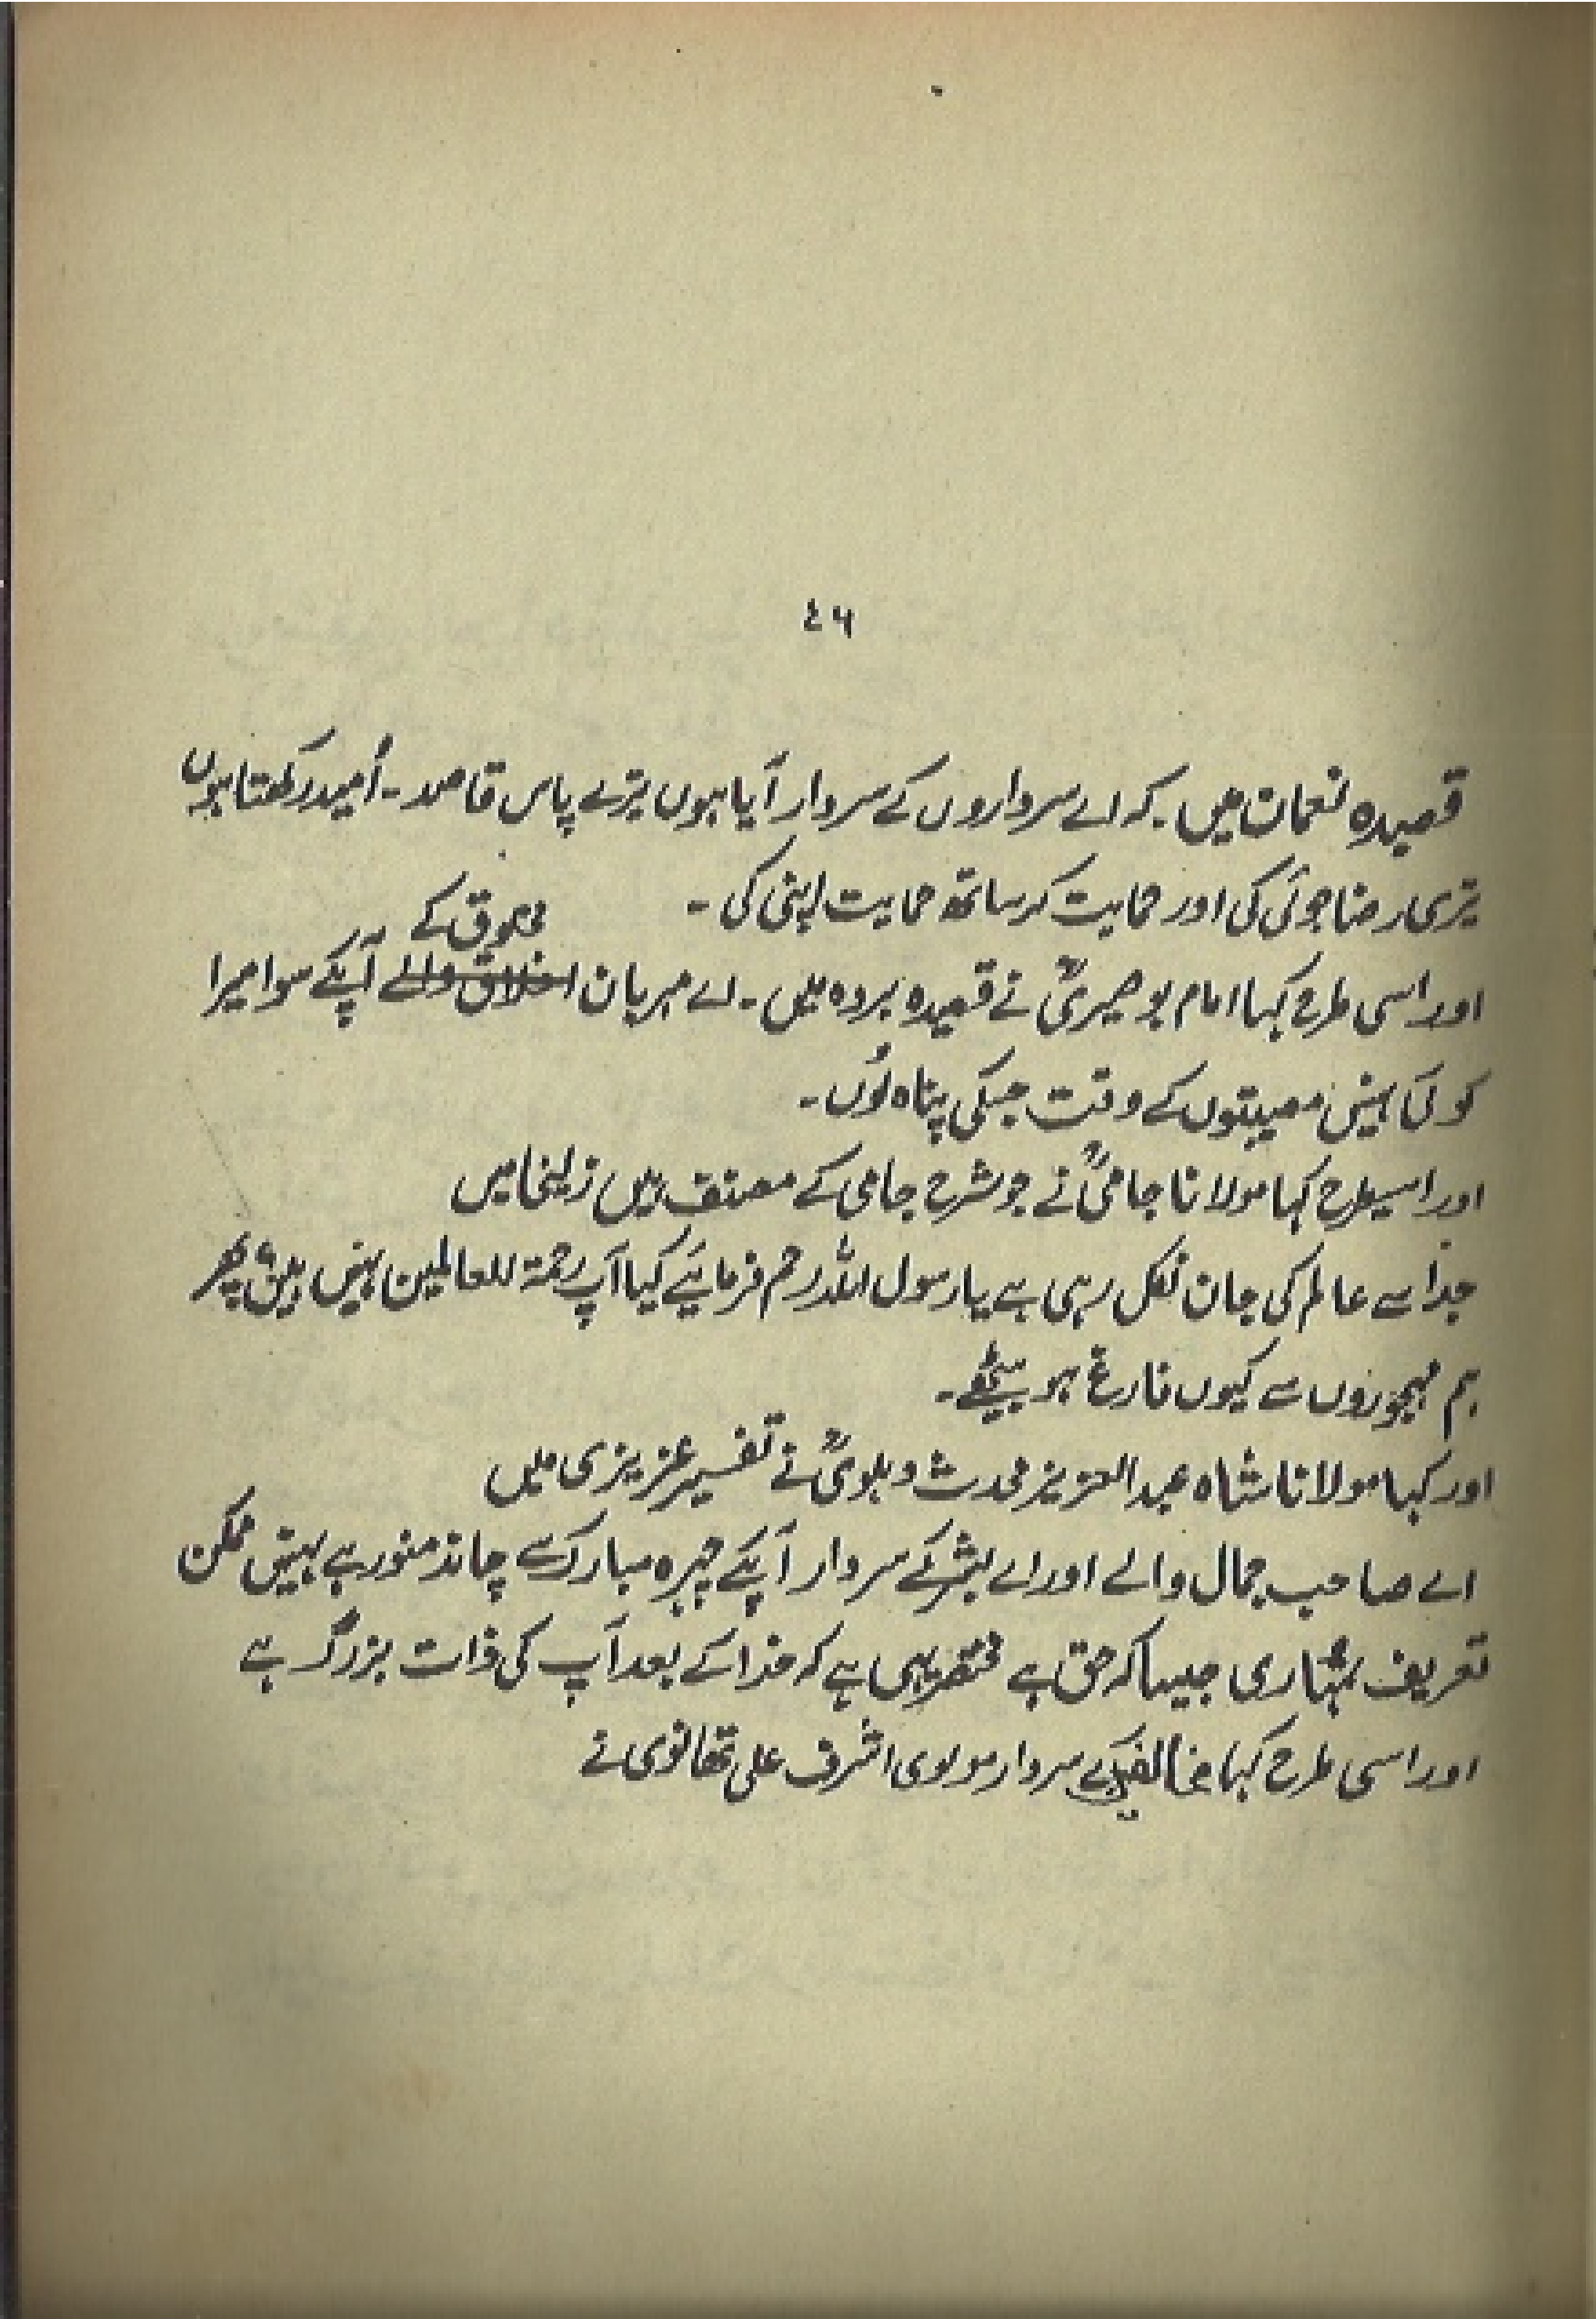 ۴۶
قصیدہ نعمان میں۔ کہ اے سرداروں کے سردار آیا ہوں تیرے پاس قاصد۔ اُمید رکھتا ہوں
تیری رضا جوئی کی اور حمایت کے ساتھ حمایت اپنی کی۔
مخلوق کے
اور اسی طرح کہا امام بوصیریؒ نے قصیدہ بردہ میں۔ اے مہربان اخلاق والے آپکے سوا میرا
کوئی نہیں مصیبتوں کے وقت جسکی پناہ لُوں۔
اور اسیطرح کہا مولانا جامیؒ نے جو شرح جامی کے مصنف ہیں زلیخا میں
جدا سے عالم کی جان نکل رہی ہے یا رسول اللہ رحم فرمایئے کیا آپ رحمۃ للعالمین نہیں ہیں پھر
ہم مہجوروں سے کیوں فارغ ہو بیٹھے۔
اور کہا مولانا شاہ عبدالعزیز محدث دہلویؒ نے تفسیر عزیزی میں
اے صاحب جمال والے اور اے بشر کے سردار آپکے چہرہ مبارک سے چاند منور ہے نہیں ممکن
تعریف تمہاری جیسا کہ حق ہے مختصر یہی ہے کہ خدا کے بعد آپ کی ذات بزرگ ہے
اور اسی طرح کہا مخالفین کے سردار مولوی اشرف علی تھانوی نے